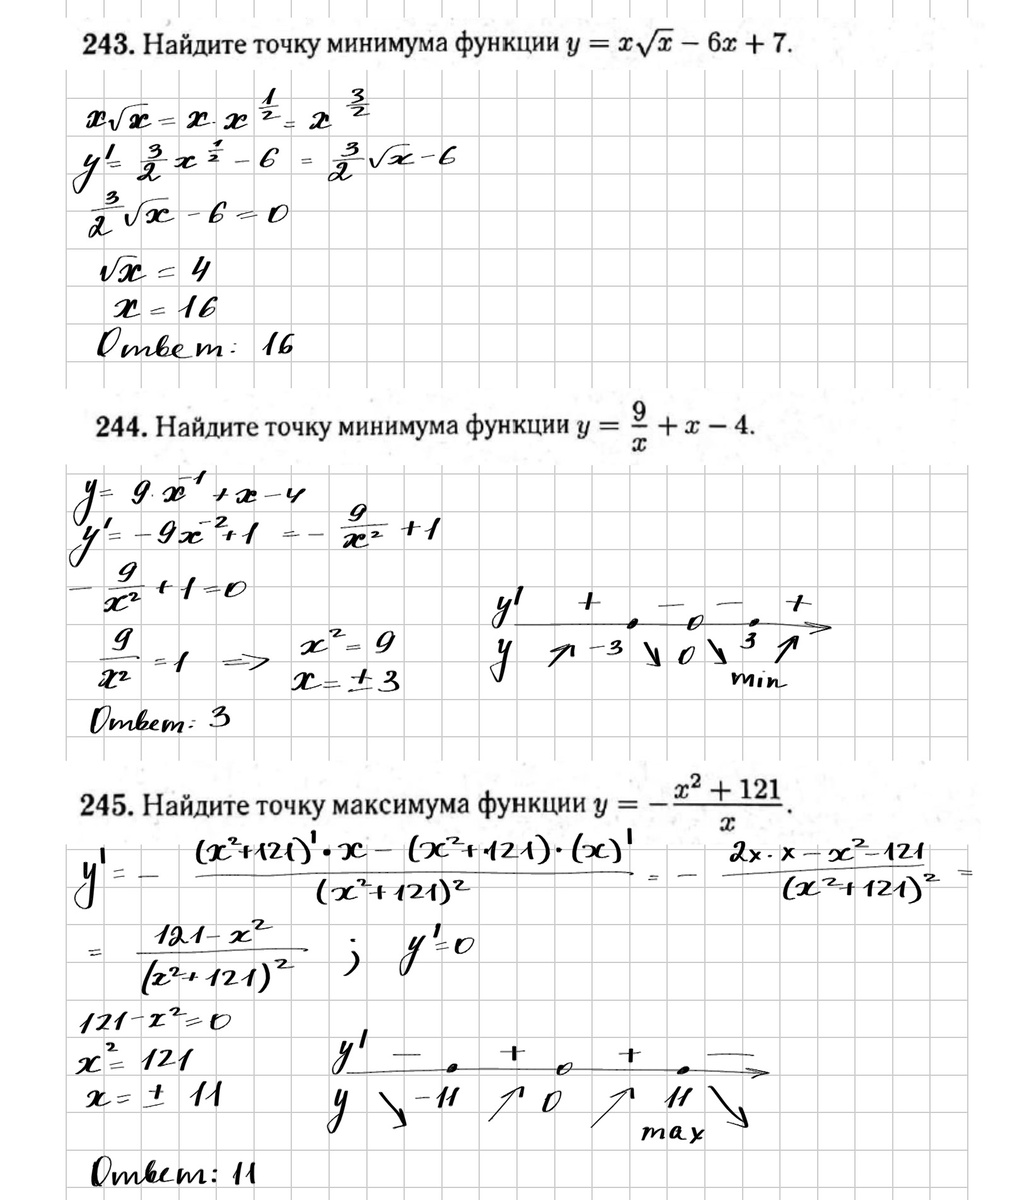 243. Найдите точку минимума функции y = x√x − 6x + 7.
x√x = x · x^(1/2) = x^(3/2)
y' = 3/2 x^(1/2) − 6 = 3/2 √x − 6
3/2 √x − 6 = 0
√x = 4
x = 16
Ответ: 16
244. Найдите точку минимума функции y = 9/x + x − 4.
y = 9 · x^(−1) + x − 4
y' = −9x^(−2) + 1 = − 9/x² + 1
− 9/x² + 1 = 0
9/x² = 1 => x² = 9
x = ± 3
y' + − − +
y ↗ −3 ↘ 0 ↘ 3 ↗
min
Ответ: 3
245. Найдите точку максимума функции y = − (x² + 121)/x.
y' = − ((x²+121)' · x − (x²+121) · (x)')/(x²+121)² = − (2x · x − x² − 121)/(x²+121)² =
= (121 − x²)/(x²+121)² ; y' = 0
121 − x² = 0
x² = 121
x = ± 11
y' − + + −
y ↘ −11 ↗ 0 ↗ 11 ↘
max
Ответ: 11